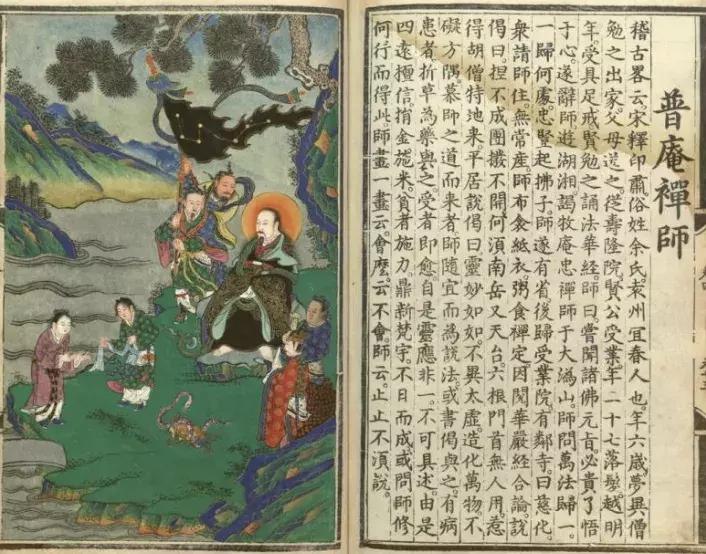 普庵禪師
稽古畧云。宋釋印肅。俗姓余氏。袁州宜春人也。年六歲。夢異僧
勉之出家。父母送之。從壽隆院賢公受業。年二十七落髮。越明
年受具足戒。賢勉之誦法華經。師曰。嘗聞諸佛元旨。必貴了悟
于心。遂辭師遊湖湘。謁牧庵忠禪師于大溈山。師問萬法歸一。
一歸何處。忠豎起拂子。師遂有省。後歸受業院。有鄰寺。曰慈化。
衆請師住。無常產。師布衾紙衣。粥食禪定。因閱華嚴經合論。說
偈曰。捏不成團撥不開。何須南岳又天台。六根門首無人用。惹
得胡僧特地來。平居說偈曰。靈妙如如。不異太虛。造化萬物。不
礙方隅。慕師之道而來者。師隨宜而為說法。或書偈與之。有病
患者。折草為藥與之。受者即愈。自是靈應非一。不可具述。由是
四遠擅信。捐金施米。貧者施力。鼎新梵宇。不日而成。或問師修
何行而得此。師畫一畫云。會麼。云不會。師云。止止不須說。